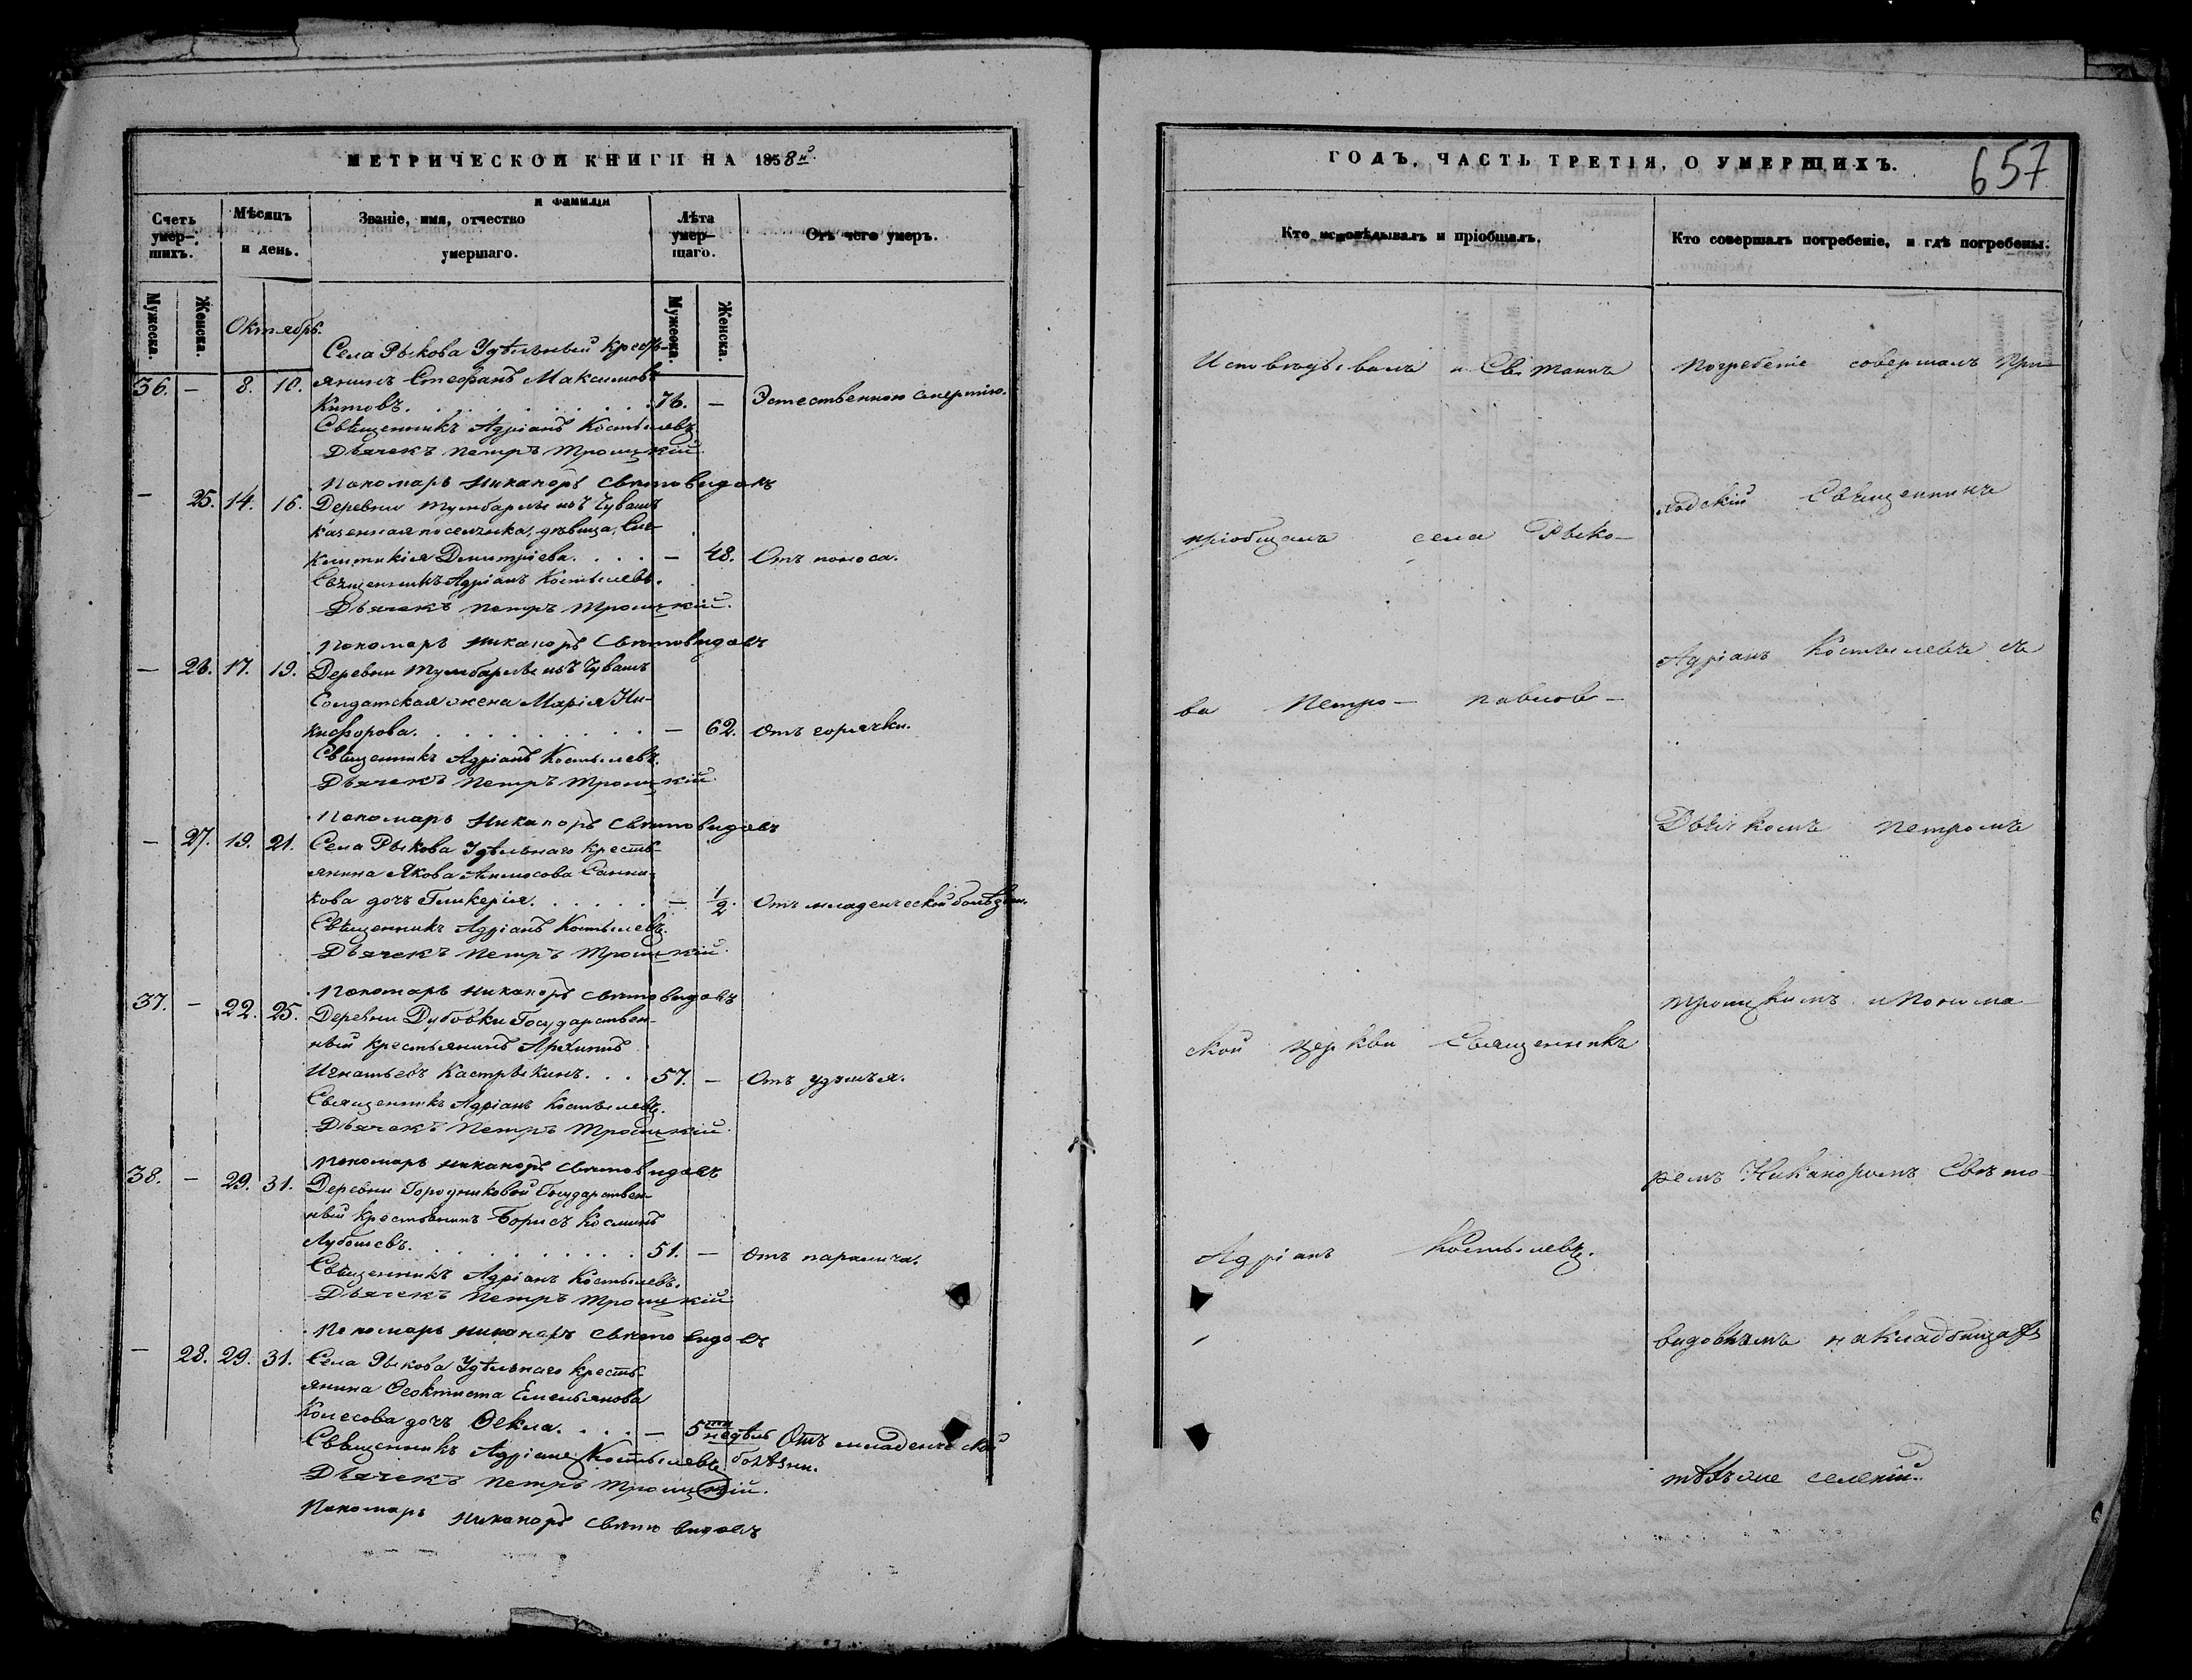 МЕТРИЧЕСКОЙ КНИГИ НА 1858й
Счетъ умер-шихъ.
Мѣсяцъ и день.
Званіе, имя, отчество и фамилія умершаго.
Лѣта умер-шаго.
Отъ чего умеръ.
Мужеска.
Женска.
Мужеска.
Женска.
Октябрь.
Села Рыкова Удѣльный кресть-
36. — 8. 10. янинъ Стефанъ Максимовъ
Китовъ. 76. — Эстественною смертію.
Священникъ Адріанъ Костылевъ.
Дьячекъ Петръ Троицкій.
Пономарь Никаноръ Святовидовъ
— 25. 14. 16. Деревни Тумбарлы изъ Чувашъ
казенная поселянка, дѣвица,
Димитріева. — 48. Отъ поноса.
Священникъ Адріанъ Костылевъ.
Дьячекъ Петръ Троицкій.
Пономарь Никаноръ Святовидовъ
— 26. 17. 19. Деревни Тумбарлы изъ Чувашъ
Солдатская жена Марія Ни-
кифорова. — 62. Отъ горячки.
Священникъ Адріанъ Костылевъ.
Дьячекъ Петръ Троицкій.
Пономарь Никаноръ Святовидовъ
— 27. 19. 21. Села Рыкова Удѣльнаго кресть-
янина Якова Санни-
кова дочь Гликерія. — 1/2. Отъ младенческой болѣзни.
Священникъ Адріанъ Костылевъ.
Дьячекъ Петръ Троицкій.
Пономарь Никаноръ Святовидовъ
37. — 22. 25. Деревни Дубовки Государствен-
ный крестьянинъ Архиппъ
Игнатьевъ Кастрыкинъ. 57. — Отъ удушья.
Священникъ Адріанъ Костылевъ.
Дьячекъ Петръ Троицкій.
Пономарь Никаноръ Святовидовъ
38. — 29. 31. Деревни Городниковой Государствен-
ный крестьянинъ Борисъ Косминъ
51. — Отъ паралича.
Священникъ Адріанъ Костылевъ.
Дьячекъ Петръ Троицкій
Пономарь Никаноръ Святовидовъ
— 28. 29. 31. Села Рыкова Удѣльнаго кресть-
янина Ѳеоктиста Емельянова
Колесова дочь Ѳекла. — 5ти недѣль Отъ младенческой
болѣзни.
Священникъ Адріанъ Костылевъ
Дьячекъ Петръ Троицкій.
Пономарь Никаноръ Святовидовъ
ГОДЪ, ЧАСТЬ ТРЕТІЯ, О УМЕРШИХЪ.
657
Кто исповѣдывалъ и пріобщалъ.
Кто совершалъ погребеніе, и гдѣ погребены.
Исповѣдывалъ и Св. Таинъ
пріобщалъ села Рыко-
ва Петро- павлов-
ской церкви Священникъ
Адріанъ Костылевъ.
Погребеніе совершалъ При-
ходскій Священникъ
Адріанъ Костылевъ съ
Дьячкомъ Петромъ
Троицкимъ и Понома-
ремъ Никаноромъ Свято-
видовымъ на кладбищахъ
тѣхъ же селеній.